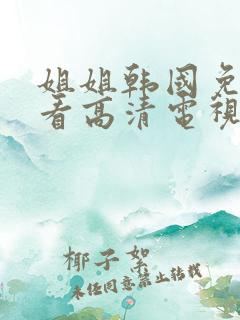 姐姐韩国免
看高清电視
椰子絮
未任同意禁止转载